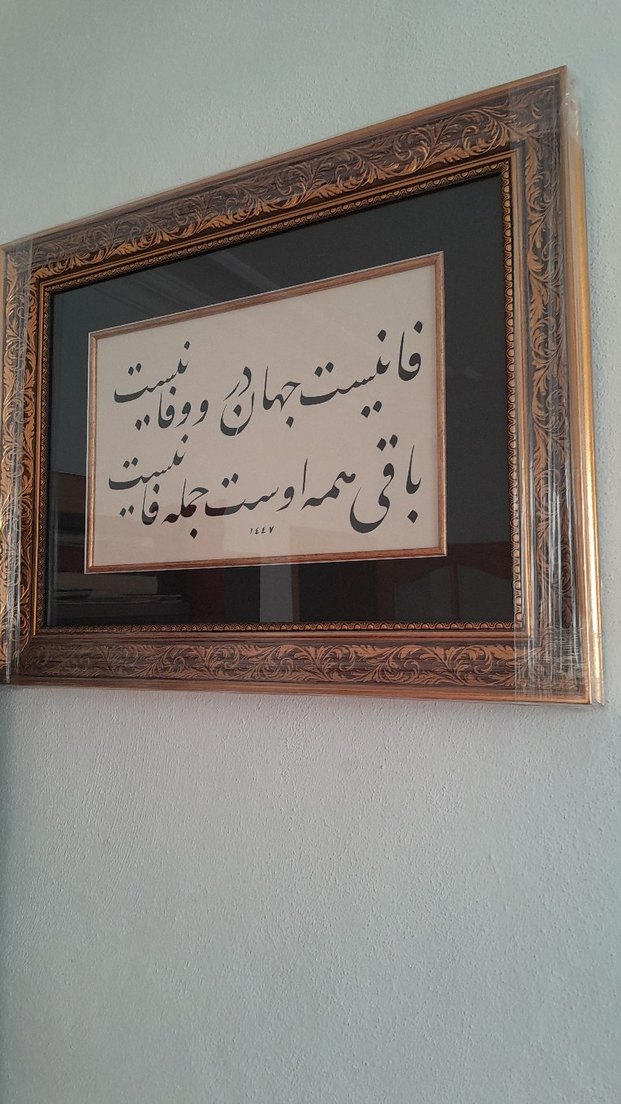 فانیست جهان در و وفا نیست
باقی همه اوست جمله فانیست
١٤٤٧